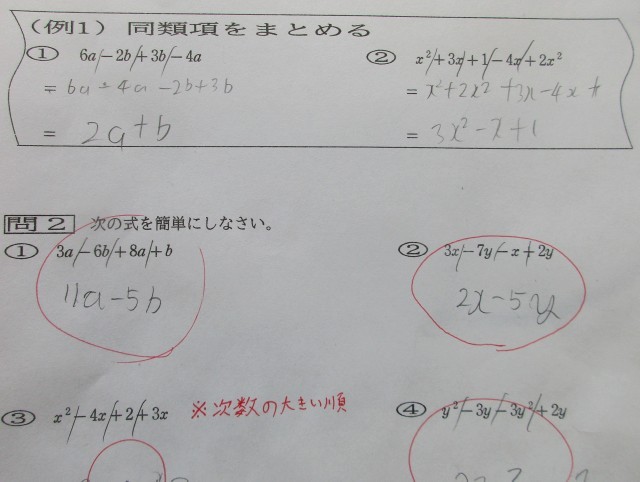 （例1）同類項をまとめる
① 6a－2b＋3b－4a
= 6a－4a－2b+3b
= 2a+b
② x²＋3x＋1－4x＋2x²
= x²+2x²+3x－4x+
= 3x²－x+1
問2 次の式を簡単にしなさい。
① 3a－6b＋8a＋b
11a－5b
② 3x－7y－x＋2y
2x－5y
③ x²－4x＋2＋3x ※次数の大きい順
④ y²－3y－3y²＋2y